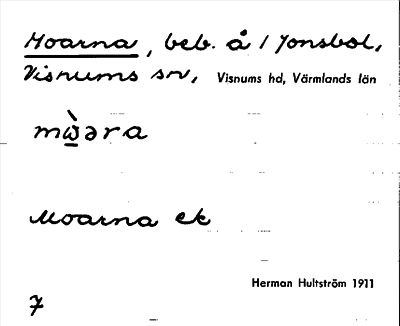 Moarna, beb. å 1 Jonsbol,
Visnums sn, Visnums hd, Värmlands län
mὼ̲əra
Moarna ek
Herman Hultström 1911
7